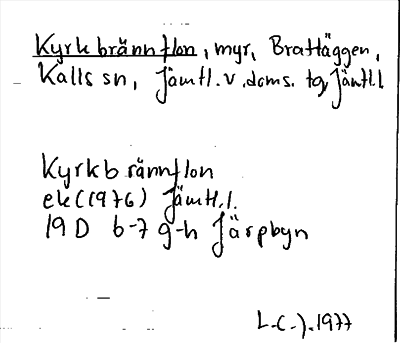 Kyrkbrännflon, myr, Brattäggen,
Kalls sn, Jämtl. v. doms. tg, Jämtl. l
Kyrkbrännflon
ek (1976) Jämtl. l.
19 D 6-7 g-h Järpbyn
L-C-J. 1977